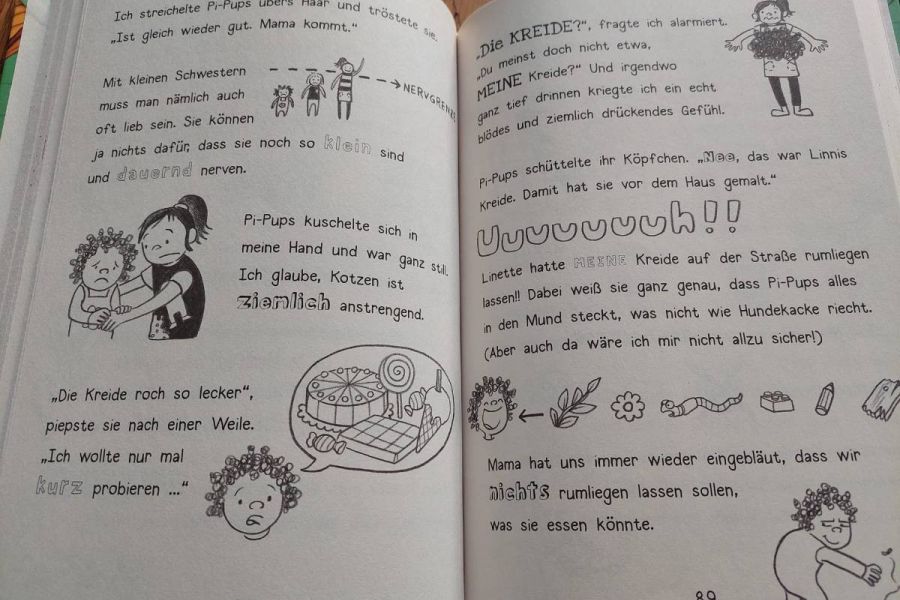 Ich streichelte Pi-Pups übers Haar und tröstete sie.
„Ist gleich wieder gut. Mama kommt.“
Mit kleinen Schwestern
muss man nämlich auch
oft lieb sein. Sie können
ja nichts dafür, dass sie noch so klein sind
und dauernd nerven.
NERVGRENZE
Pi-Pups kuschelte sich in
meine Hand und war ganz still.
Ich glaube, Kotzen ist
ziemlich anstrengend.
„Die Kreide roch so lecker“,
piepste sie nach einer Weile.
„Ich wollte nur mal
kurz probieren ...“
„Die KREIDE?“, fragte ich alarmiert.
„Du meinst doch nicht etwa,
MEINE Kreide?“ Und irgendwo
ganz tief drinnen kriegte ich ein echt
blödes und ziemlich drückendes Gefühl.
Pi-Pups schüttelte ihr Köpfchen. „Nee, das war Linnis
Kreide. Damit hat sie vor dem Haus gemalt.“
Uuuuuuuuh!!
Linette hatte MEINE Kreide auf der Straße rumliegen
lassen!! Dabei weiß sie ganz genau, dass Pi-Pups alles
in den Mund steckt, was nicht wie Hundekacke riecht.
(Aber auch da wäre ich mir nicht allzu sicher!)
Mama hat uns immer wieder eingebläut, dass wir
nichts rumliegen lassen sollen,
was sie essen könnte.
89